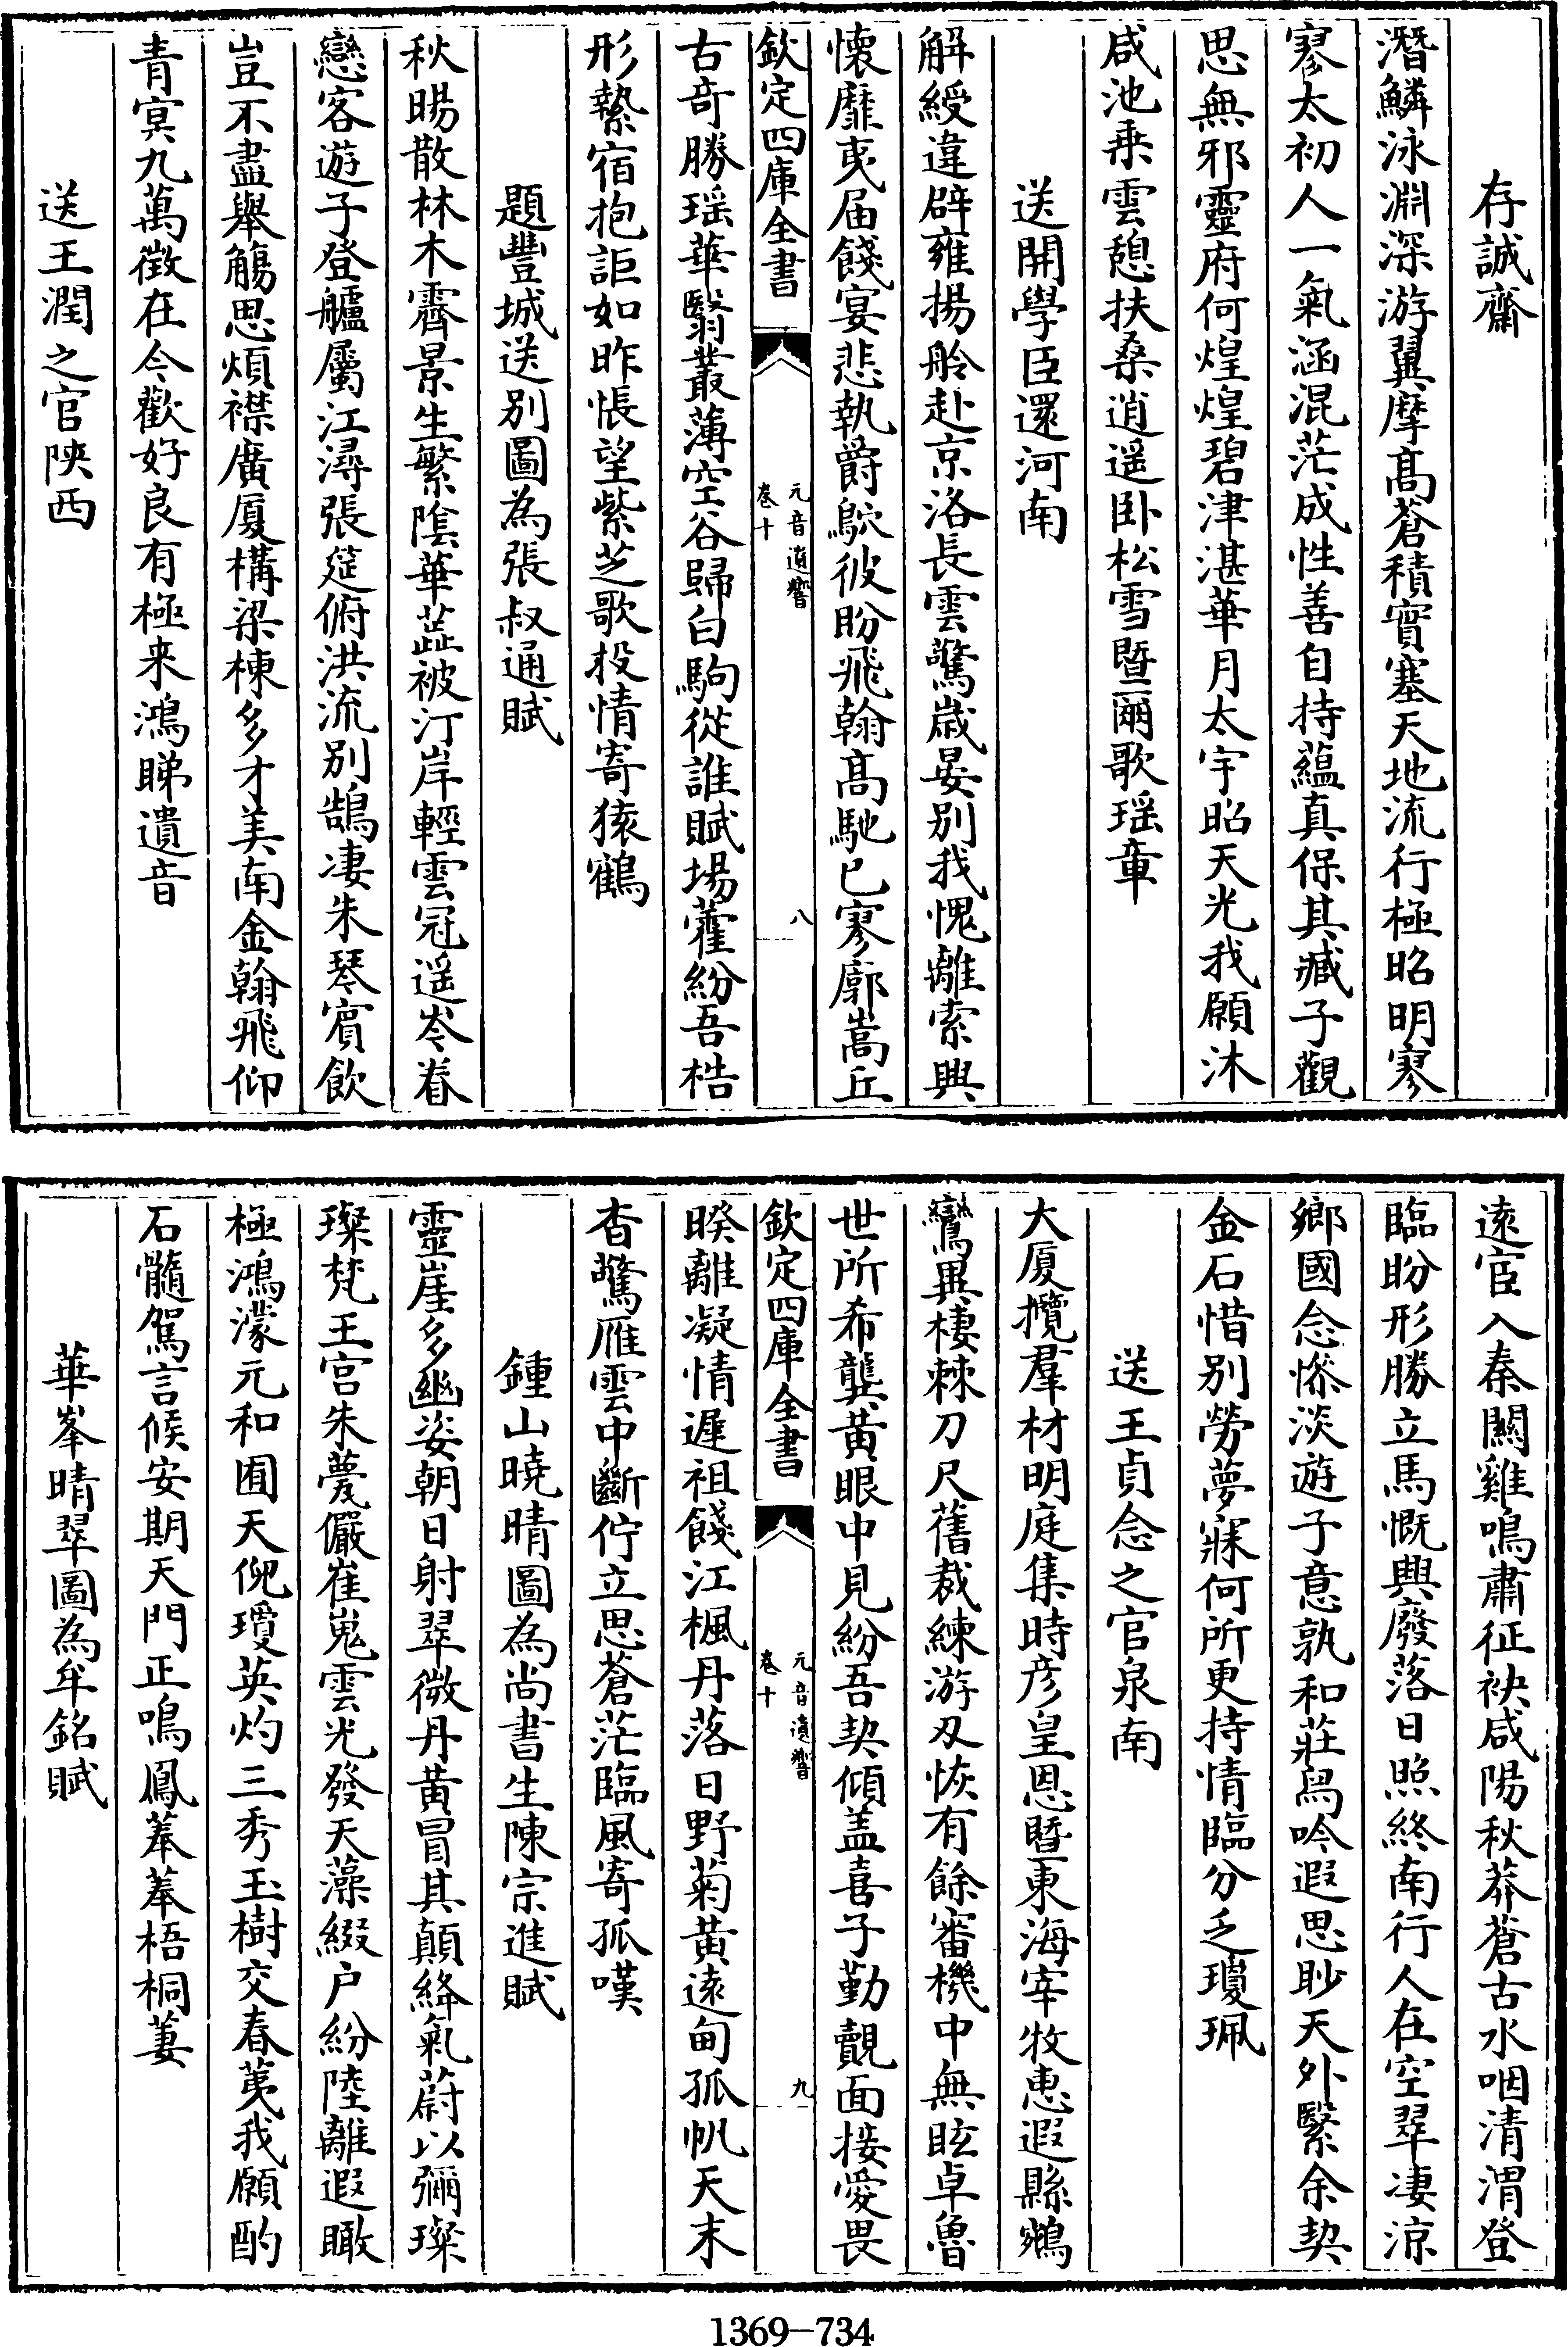 存誠齋
潛鱗泳淵深游翼摩髙蒼積實塞天地流行極昭明寥
寥太初人一氣涵混茫成性善自持藴真保其臧子觀
思無邪靈府何煌煌碧津湛華月太宇昭天光我願沐
咸池乗雲憩扶桑逍遥卧松雪暨爾歌瑶章
送開學臣還河南
解綬違辟雍揚舲赴京洛長雲驚歳晏别我愧離索興
懷靡夷届餞宴悲執爵鴥彼盼飛翰髙馳已寥廓嵩丘
欽定四庫全書
元音遺響
卷十
八
古竒勝瑶華翳叢薄空谷歸白駒從誰賦場藿紛吾梏
形縶宿抱詎如昨悵望紫芝歌投情寄猿鶴
題豐城送别圖為張叔通賦
秋暘散林木霽景生繁隂華蕋被汀岸輕雲冠遥岑眷
戀客遊子登艫屬江潯張筵俯洪流别鵠凄朱琴賔飲
豈不盡舉觴思煩襟廣厦構梁棟多才美南金翰飛仰
青冥九萬徵在今歡好良有極来鴻睇遺音
送王潤之官陜西
逺宦入秦關雞鳴肅征袂咸陽秋莽蒼古水咽清渭登
臨盼形勝立馬慨興廢落日照終南行人在空翠凄涼
鄉國念慘淡遊子意孰和莊舄吟遐思眇天外緊余契
金石惜别勞夢寐何所更持情臨分乏瓊珮
送王貞念之官泉南
大厦攬羣材明庭集時彦皇恩暨東海宰牧惠遐縣鵷
鸞異棲棘刀尺舊裁練游刃恢有餘審機中無眩卓魯
世所希龔黄眼中見紛吾契傾盖喜子勤覿面接愛畏
欽定四庫全書
元音遺響
卷十
九
暌離凝情遲祖餞江楓丹落日野菊黄逺甸孤帆天末
杳驚雁雲中斷佇立思蒼茫臨風寄孤嘆
鍾山曉晴圖為尚書生陳宗進賦
靈崖多幽姿朝日射翠微丹黄冒其顛絳氣蔚以彌璨
璨梵王宫朱甍儼崔嵬雲光發天藻綴户紛陸離遐瞰
極鴻濛元和囿天倪瓊英灼三秀玉樹交春荑我願酌
石髓駕言候安期天門正鳴鳳菶菶梧桐萋
華峯晴翠圖為牟銘賦
1369—734